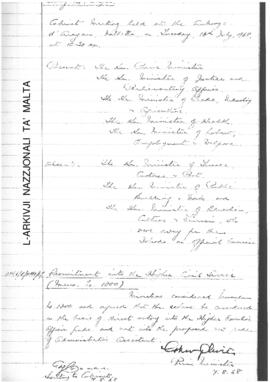 Cabinet Meeting held at the Auberge
d'Aragon, Valletta on Tuesday, 16th July, 1968,
at 10.30 am.
Present: The Hon. Prime Minister
The Hon. Minister of Justice and
Parliamentary Affairs
The Hon. Minister of Trade, Industry
and Agriculture
The Hon. Minister of Health
The Hon. Minister of Labour,
Employment & Welfare
Absent: The Hon. Minister of Finance,
Customs & Port
The Hon. Minister of Public
Building & Works and
The Hon. Minister of Education,
Culture & Tourism, who
were away from these
Islands on official business
Recruitment into the Higher Civil Service
(Memo. No. 1000)
Ministers considered Memorandum
No 1000 and agreed that the
on the basis of direct entry into the Higher
Officer grade and not into the proposed new grade
of Administrative Assistant.
Prime Minister
7.8.68
Secretary to Cabinet
L-ARKIVJI NAZZJONALI TA' MALTA